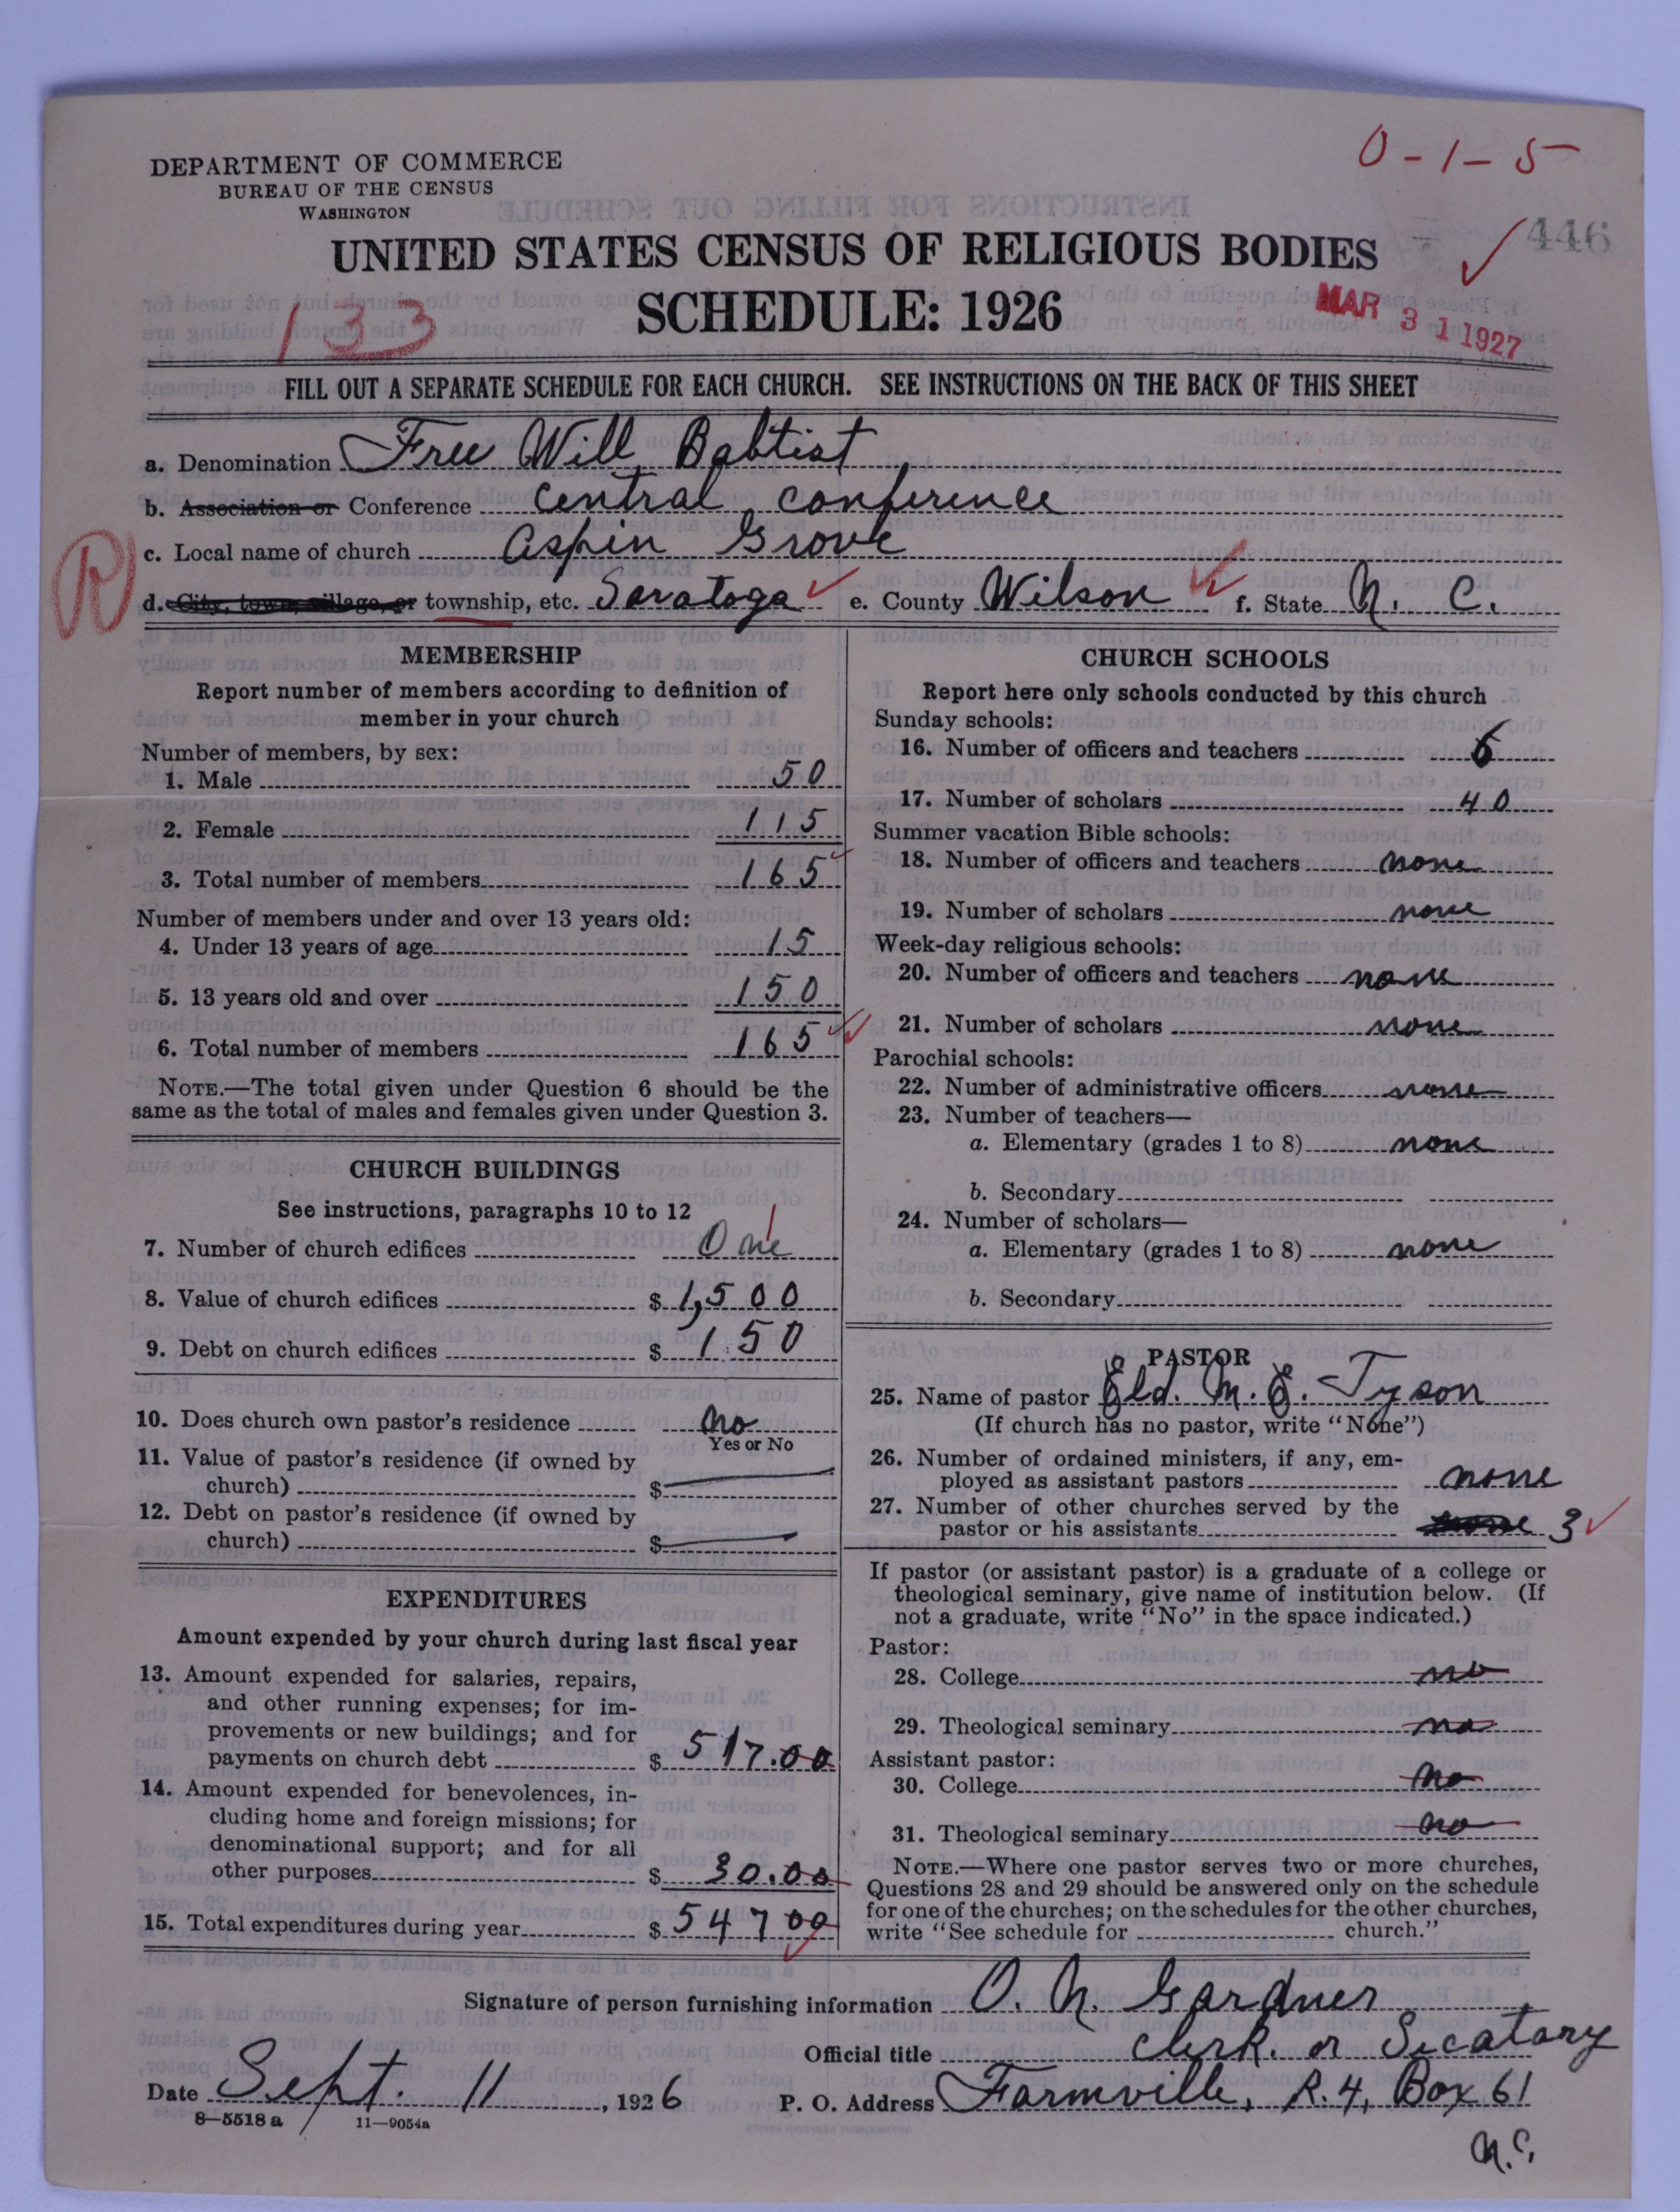 0-1-5
DEPARTMENT OF COMMERCE
BUREAU OF THE CENSUS
WASHINGTON
446
UNITED STATES CENSUS OF RELIGIOUS BODIES
SCHEDULE: 1926
133
MAR 31 1927
FILL OUT A SEPARATE SCHEDULE FOR EACH CHURCH. SEE INSTRUCTIONS ON THE BACK OF THIS SHEET
a. Denomination Free Will Babtist
b. Association or Conference Central conference
c. Local name of church Aspin Grove
R
d. City, town, village, or township, etc. Saratoga e. County Wilson f. State N. C.
MEMBERSHIP
Report number of members according to definition of
member in your church
Number of members, by sex:
1. Male 50
2. Female 115
3. Total number of members 165
Number of members under and over 13 years old:
4. Under 13 years of age 15
5. 13 years old and over 150
6. Total number of members 165
NOTE.—The total given under Question 6 should be the
same as the total of males and females given under Question 3.
CHURCH BUILDINGS
See instructions, paragraphs 10 to 12
7. Number of church edifices One 1
8. Value of church edifices $ 1,500
9. Debt on church edifices $ 150
10. Does church own pastor's residence no
Yes or No
11. Value of pastor's residence (if owned by
church) $
12. Debt on pastor's residence (if owned by
church) $
EXPENDITURES
Amount expended by your church during last fiscal year
13. Amount expended for salaries, repairs,
and other running expenses; for im-
provements or new buildings; and for
payments on church debt $ 517.00
14. Amount expended for benevolences, in-
cluding home and foreign missions; for
denominational support; and for all
other purposes $ 30.00
15. Total expenditures during year $ 547 00
CHURCH SCHOOLS
Report here only schools conducted by this church
Sunday schools:
16. Number of officers and teachers 6
17. Number of scholars 40
Summer vacation Bible schools:
18. Number of officers and teachers none
19. Number of scholars none
Week-day religious schools:
20. Number of officers and teachers none
21. Number of scholars none
Parochial schools:
22. Number of administrative officers none
23. Number of teachers—
a. Elementary (grades 1 to 8) none
b. Secondary
24. Number of scholars—
a. Elementary (grades 1 to 8) none
b. Secondary
PASTOR
25. Name of pastor Eld. M. E. Tyson
(If church has no pastor, write "None")
26. Number of ordained ministers, if any, em-
ployed as assistant pastors none
27. Number of other churches served by the
pastor or his assistants none 3
If pastor (or assistant pastor) is a graduate of a college or
theological seminary, give name of institution below. (If
not a graduate, write "No" in the space indicated.)
Pastor:
28. College no
29. Theological seminary no
Assistant pastor:
30. College no
31. Theological seminary no
NOTE.—Where one pastor serves two or more churches,
Questions 28 and 29 should be answered only on the schedule
for one of the churches; on the schedules for the other churches,
write "See schedule for church."
Signature of person furnishing information O. N. Gardner
Official title Clerk. or Secatary
Date Sept. 11, 1926 P. O. Address Farmville, R. 4, Box 61
N.C.
8—5518 a 11—9054a